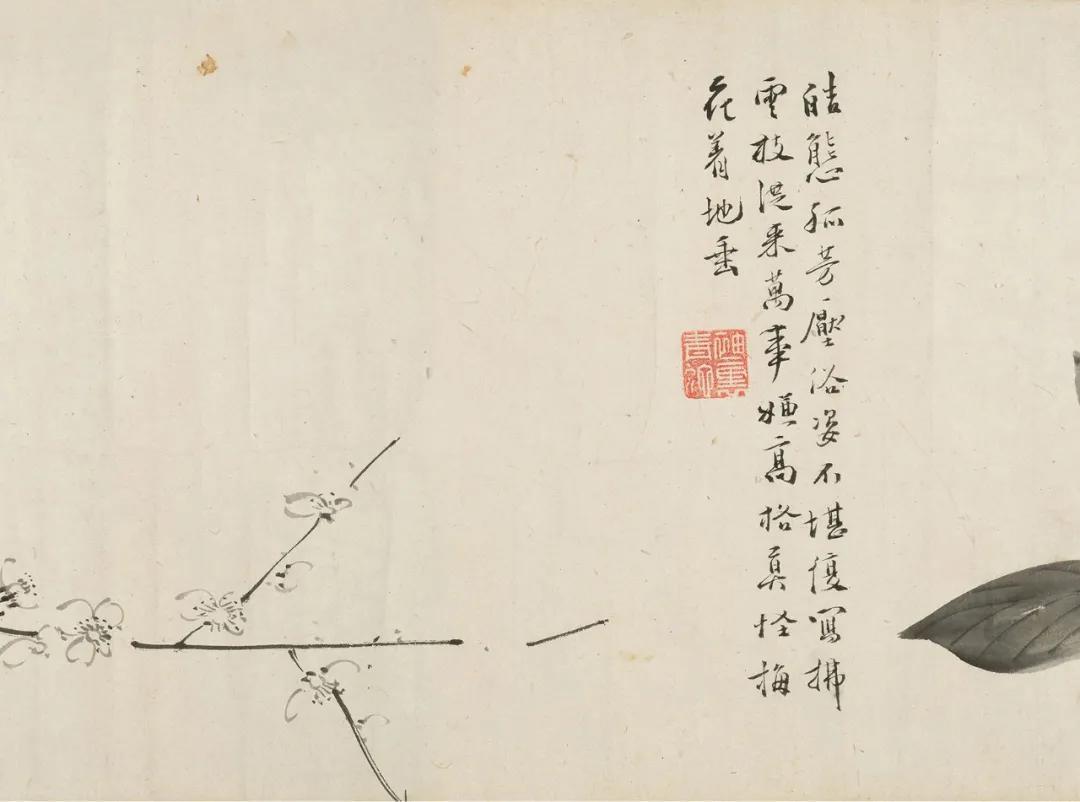 皓態孤芳壓俗姿不堪復寫拂
雲枝從来萬事嫌高格莫怪梅
花着地垂
袖裏青蛇